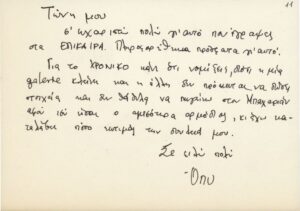 11
Τώνη μου
σ' ευχαριστώ πολύ γι' αυτό που έγραψες
στα ΕΠΙΚΑΙΡΑ. Πληροφορήθηκα πρόσφατα γι' αυτό.
Για το ΧΡΟΝΙΚΟ κάνε ότι νομίζεις, διότι η μία
galerie κλείνει και η άλλη δεν πρόκειται να δώσει
στοιχεία και δεν θάθελα να πηγαίνω στον Μπαχαριάν
αφού εσύ είσαι ο αρμόδιος, κι έχω κα-
ταλάβει πόσο εκτιμάς την δουλειά μου.
Σε φιλώ πολύ
Όπυ